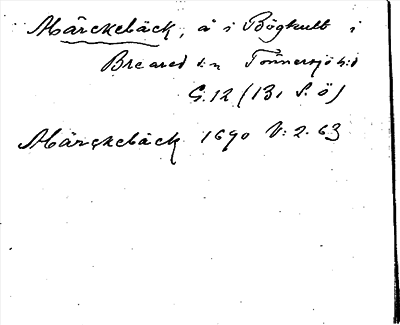 Märckebäck, å i Böghult i
Breared sn Tönnersjö hd
G.12 (131 S. ö)
Märckebäck 1690 V: 2. 63